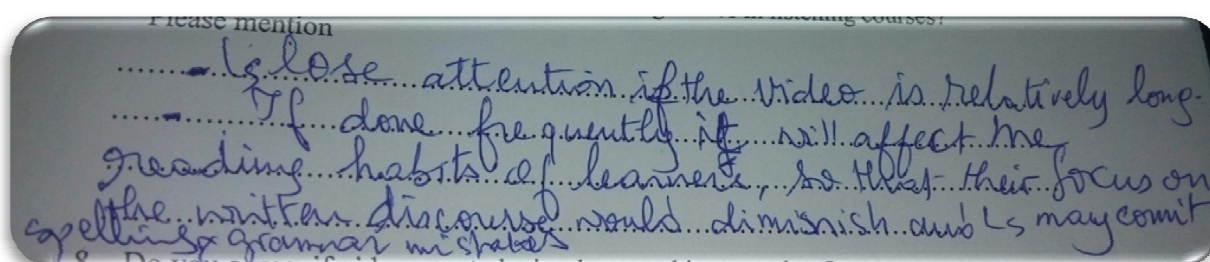 Please mention in listening courses?
- Ls lose attention if the video is relatively long.
- If done frequently it will affect the
reading habits of learners, so that their focus on
the written discourse would diminish and Ls may comit
spelling & grammar mistakes
8. Do you